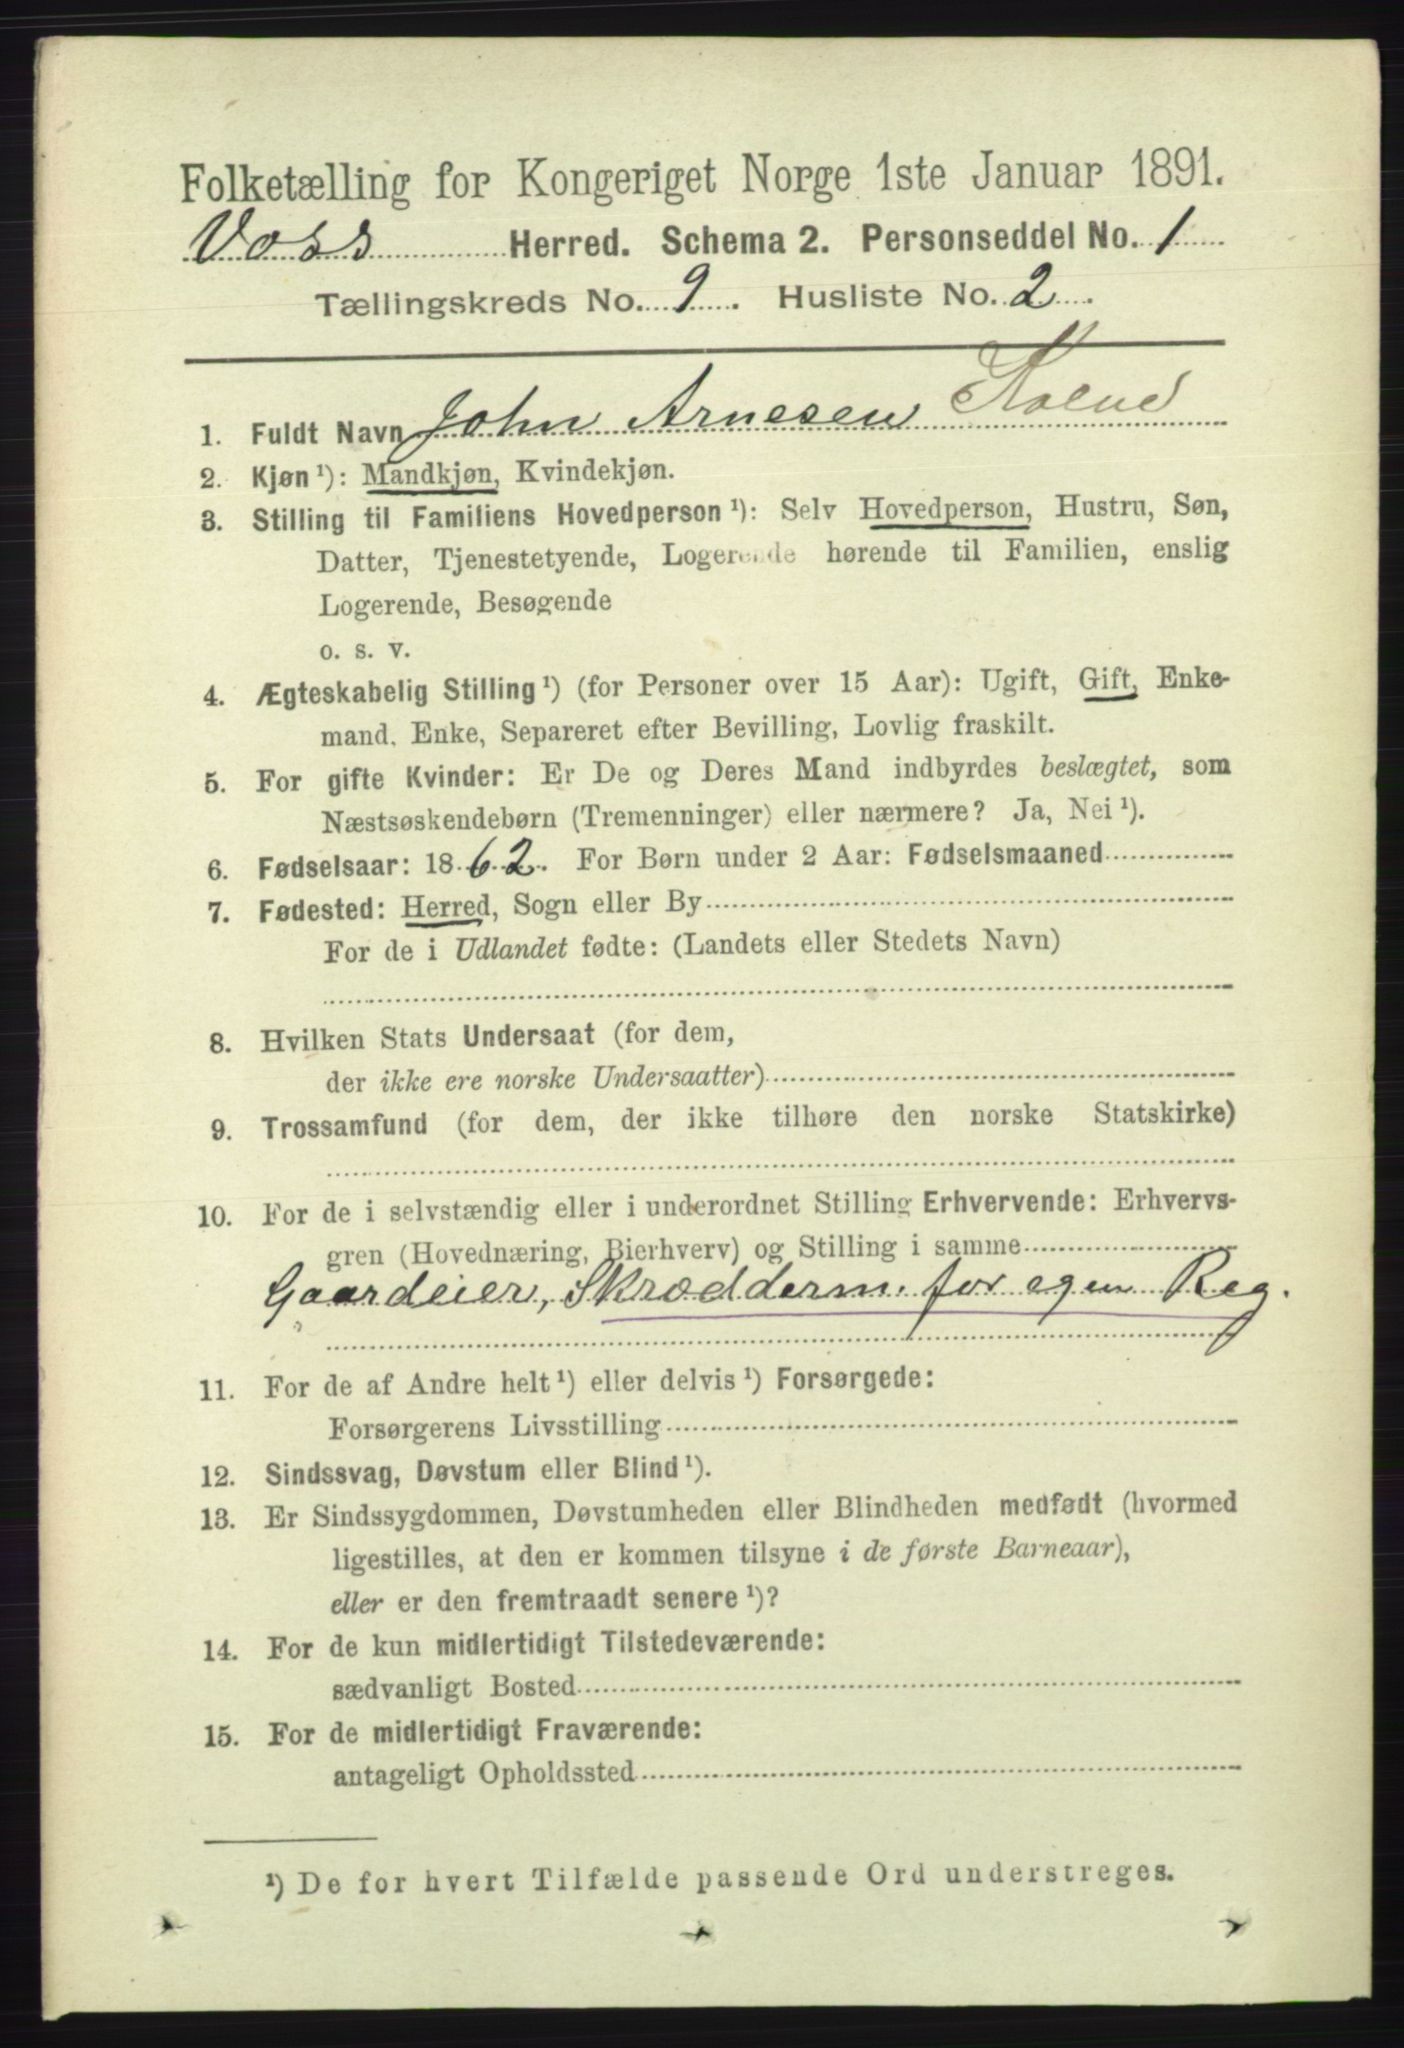 Folketælling for Kongeriget Norge 1ste Januar 1891.
Voss Herred. Schema 2. Personseddel No. 1
Tællingskreds No. 9. Husliste No. 2.
1. Fuldt Navn John Arnesen
2. Kjøn ¹): Mandkjøn, Kvindekjøn.
3. Stilling til Familiens Hovedperson ¹): Selv Hovedperson, Hustru, Søn,
Datter, Tjenestetyende, Logerende hørende til Familien, enslig
Logerende, Besøgende
o. s. v.
4. Ægteskabelig Stilling ¹) (for Personer over 15 Aar): Ugift, Gift, Enke-
mand, Enke, Separeret efter Bevilling, Lovlig fraskilt.
5. For gifte Kvinder: Er De og Deres Mand indbyrdes beslægtet, som
Næstsøskendebørn (Tremenninger) eller nærmere? Ja, Nei ¹).
6. Fødselsaar: 1862. For Børn under 2 Aar: Fødselsmaaned
7. Fødested: Herred, Sogn eller By
For de i Udlandet fødte: (Landets eller Stedets Navn)
8. Hvilken Stats Undersaat (for dem,
der ikke ere norske Undersaatter)
9. Trossamfund (for dem, der ikke tilhøre den norske Statskirke)
10. For de i selvstændig eller i underordnet Stilling Erhvervende: Erhvervs-
gren (Hovednæring, Bierhverv) og Stilling i samme
Gaardeier, Skrædderm. for egen Reg.
11. For de af Andre helt ¹) eller delvis ¹) Forsørgede:
Forsørgerens Livsstilling
12. Sindssvag, Døvstum eller Blind ¹).
13. Er Sindssygdommen, Døvstumheden eller Blindheden medfødt (hvormed
ligestilles, at den er kommen tilsyne i de første Barneaar),
eller er den fremtraadt senere ¹)?
14. For de kun midlertidigt Tilstedeværende:
sædvanligt Bosted
15. For de midlertidigt Fraværende:
antageligt Opholdssted
¹) De for hvert Tilfælde passende Ord understreges.